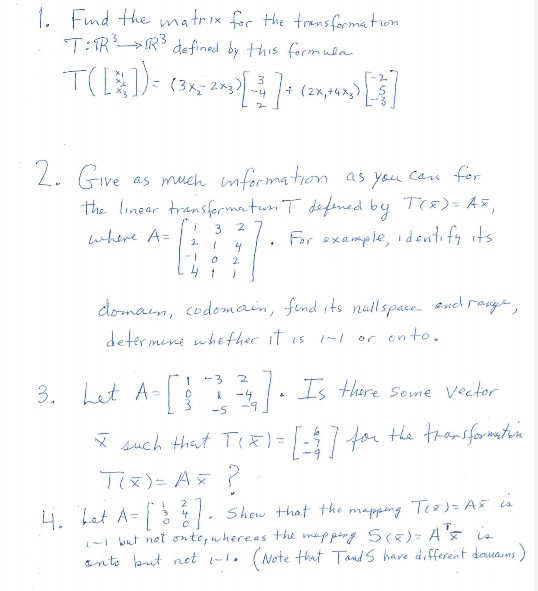 1. Find the matrix for the transformation
T: ℝ³ → ℝ³ defined by this formula
T([x₁ x₂ x₃]) = (3x₂ - 2x₃)[3 -4 2] + (2x₁ + 4x₃)[-2 5 -3]
2. Give as much information as you can for
the linear transformation T defined by T(x̄) = Ax̄,
where A = [1 3 2; 2 1 4; -1 0 2; 4 1 1]. For example, identify its
domain, codomain, find its nullspace and range,
determine whether it is 1-1 or onto.
3. Let A = [1 -3 2; 0 1 -4; 3 -5 -9]. Is there some vector
x̄ such that T(x̄) = [6 -7 -9] for the transformation
T(x̄) = Ax̄ ?
4. Let A = [1 2; 3 4; 0 0]. Show that the mapping T(x̄) = Ax̄ is
1-1 but not onto, whereas the mapping S(x̄) = Aᵀx̄ is
onto but not 1-1. (Note that T and S have different domains)